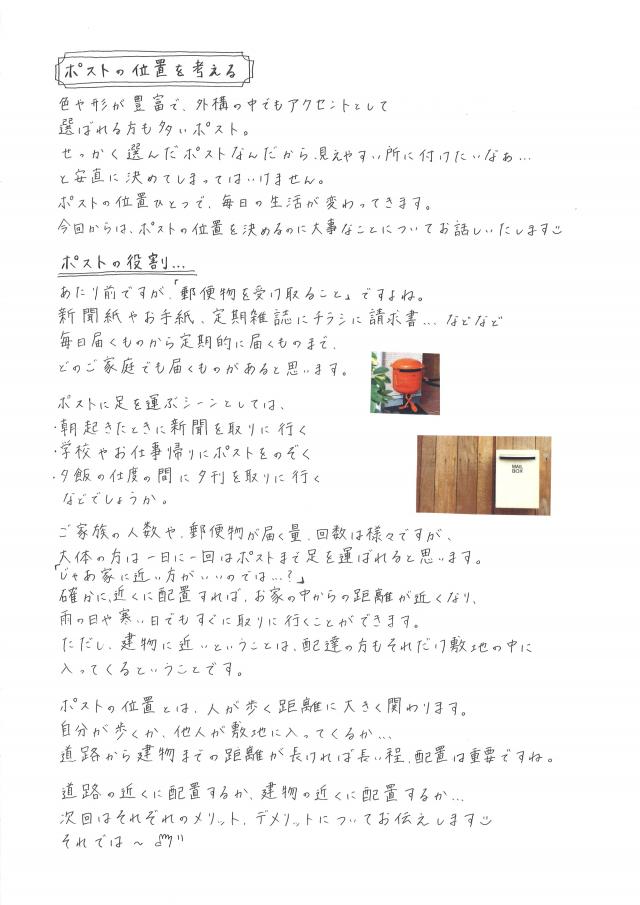 ポストの位置を考える
色や形が豊富で、外構の中でもアクセントとして
選ばれる方も多いポスト。
せっかく選んだポストなんだから、見えやすい所に付けたいなぁ…
と安直に決めてしまってはいけません。
ポストの位置ひとつで、毎日の生活が変わってきます。
今回からは、ポストの位置を決めるのに大事なことについてお話しいたします
ポストの役割…
あたり前ですが、「郵便物を受け取ること」ですよね。
新聞紙やお手紙、定期雑誌にチラシに請求書…などなど
毎日届くものから定期的に届くものまで、
どのご家庭でも届くものがあると思います。
ポストに足を運ぶシーンとしては、
・朝起きたときに新聞を取りに行く
・学校やお仕事帰りにポストをのぞく
・夕飯の仕度の間に夕刊を取りに行く
などでしょうか。
MAIL
BOX
ご家族の人数や、郵便物が届く量、回数は様々ですが、
大体の方は一日に一回はポストまで足を運ばれると思います。
「じゃあ家に近い方がいいのでは…?」
確かに、近くに配置すれば、お家の中からの距離が近くなり、
雨の日や寒い日でもすぐに取りに行くことができます。
ただし、建物に近いということは、配達の方もそれだけ敷地の中に
入ってくるということです。
ポストの位置とは、人が歩く距離に大きく関わります。
自分が歩くか、他人が敷地に入ってくるか…
道路から建物までの距離が長ければ長い程、配置は重要ですね。
道路の近くに配置するか、建物の近くに配置するか…
次回はそれぞれのメリット、デメリットについてお伝えします
それでは～